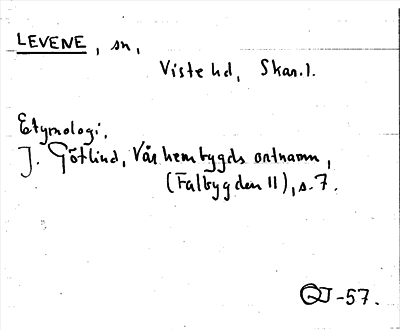 LEVENE, sn,
Viste hd, Skar.l.
Etymologi.
J. Götlind, Vår hembygds ortnamn,
(Falbygden II), s. 7.
-57.